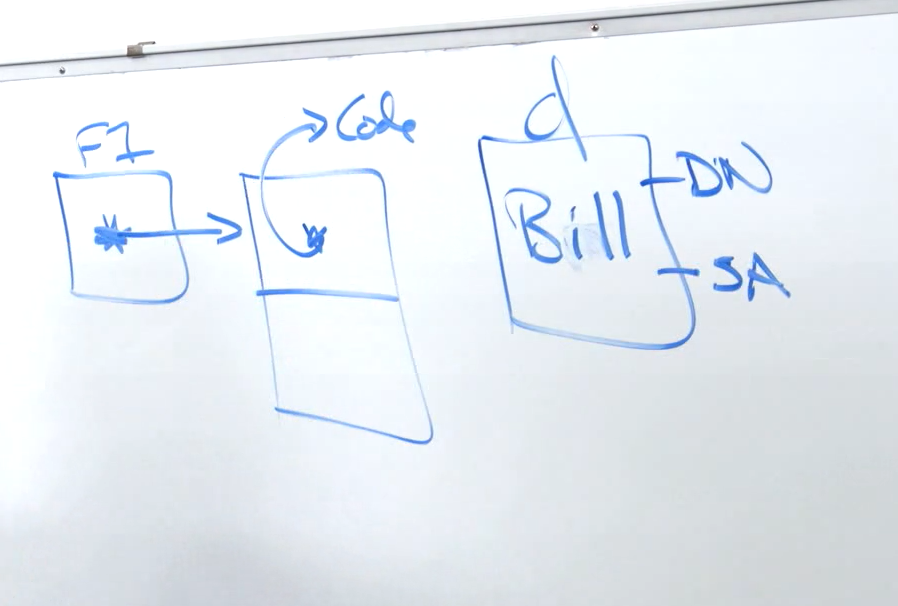 F1
Code
d
Bill
DN
SA